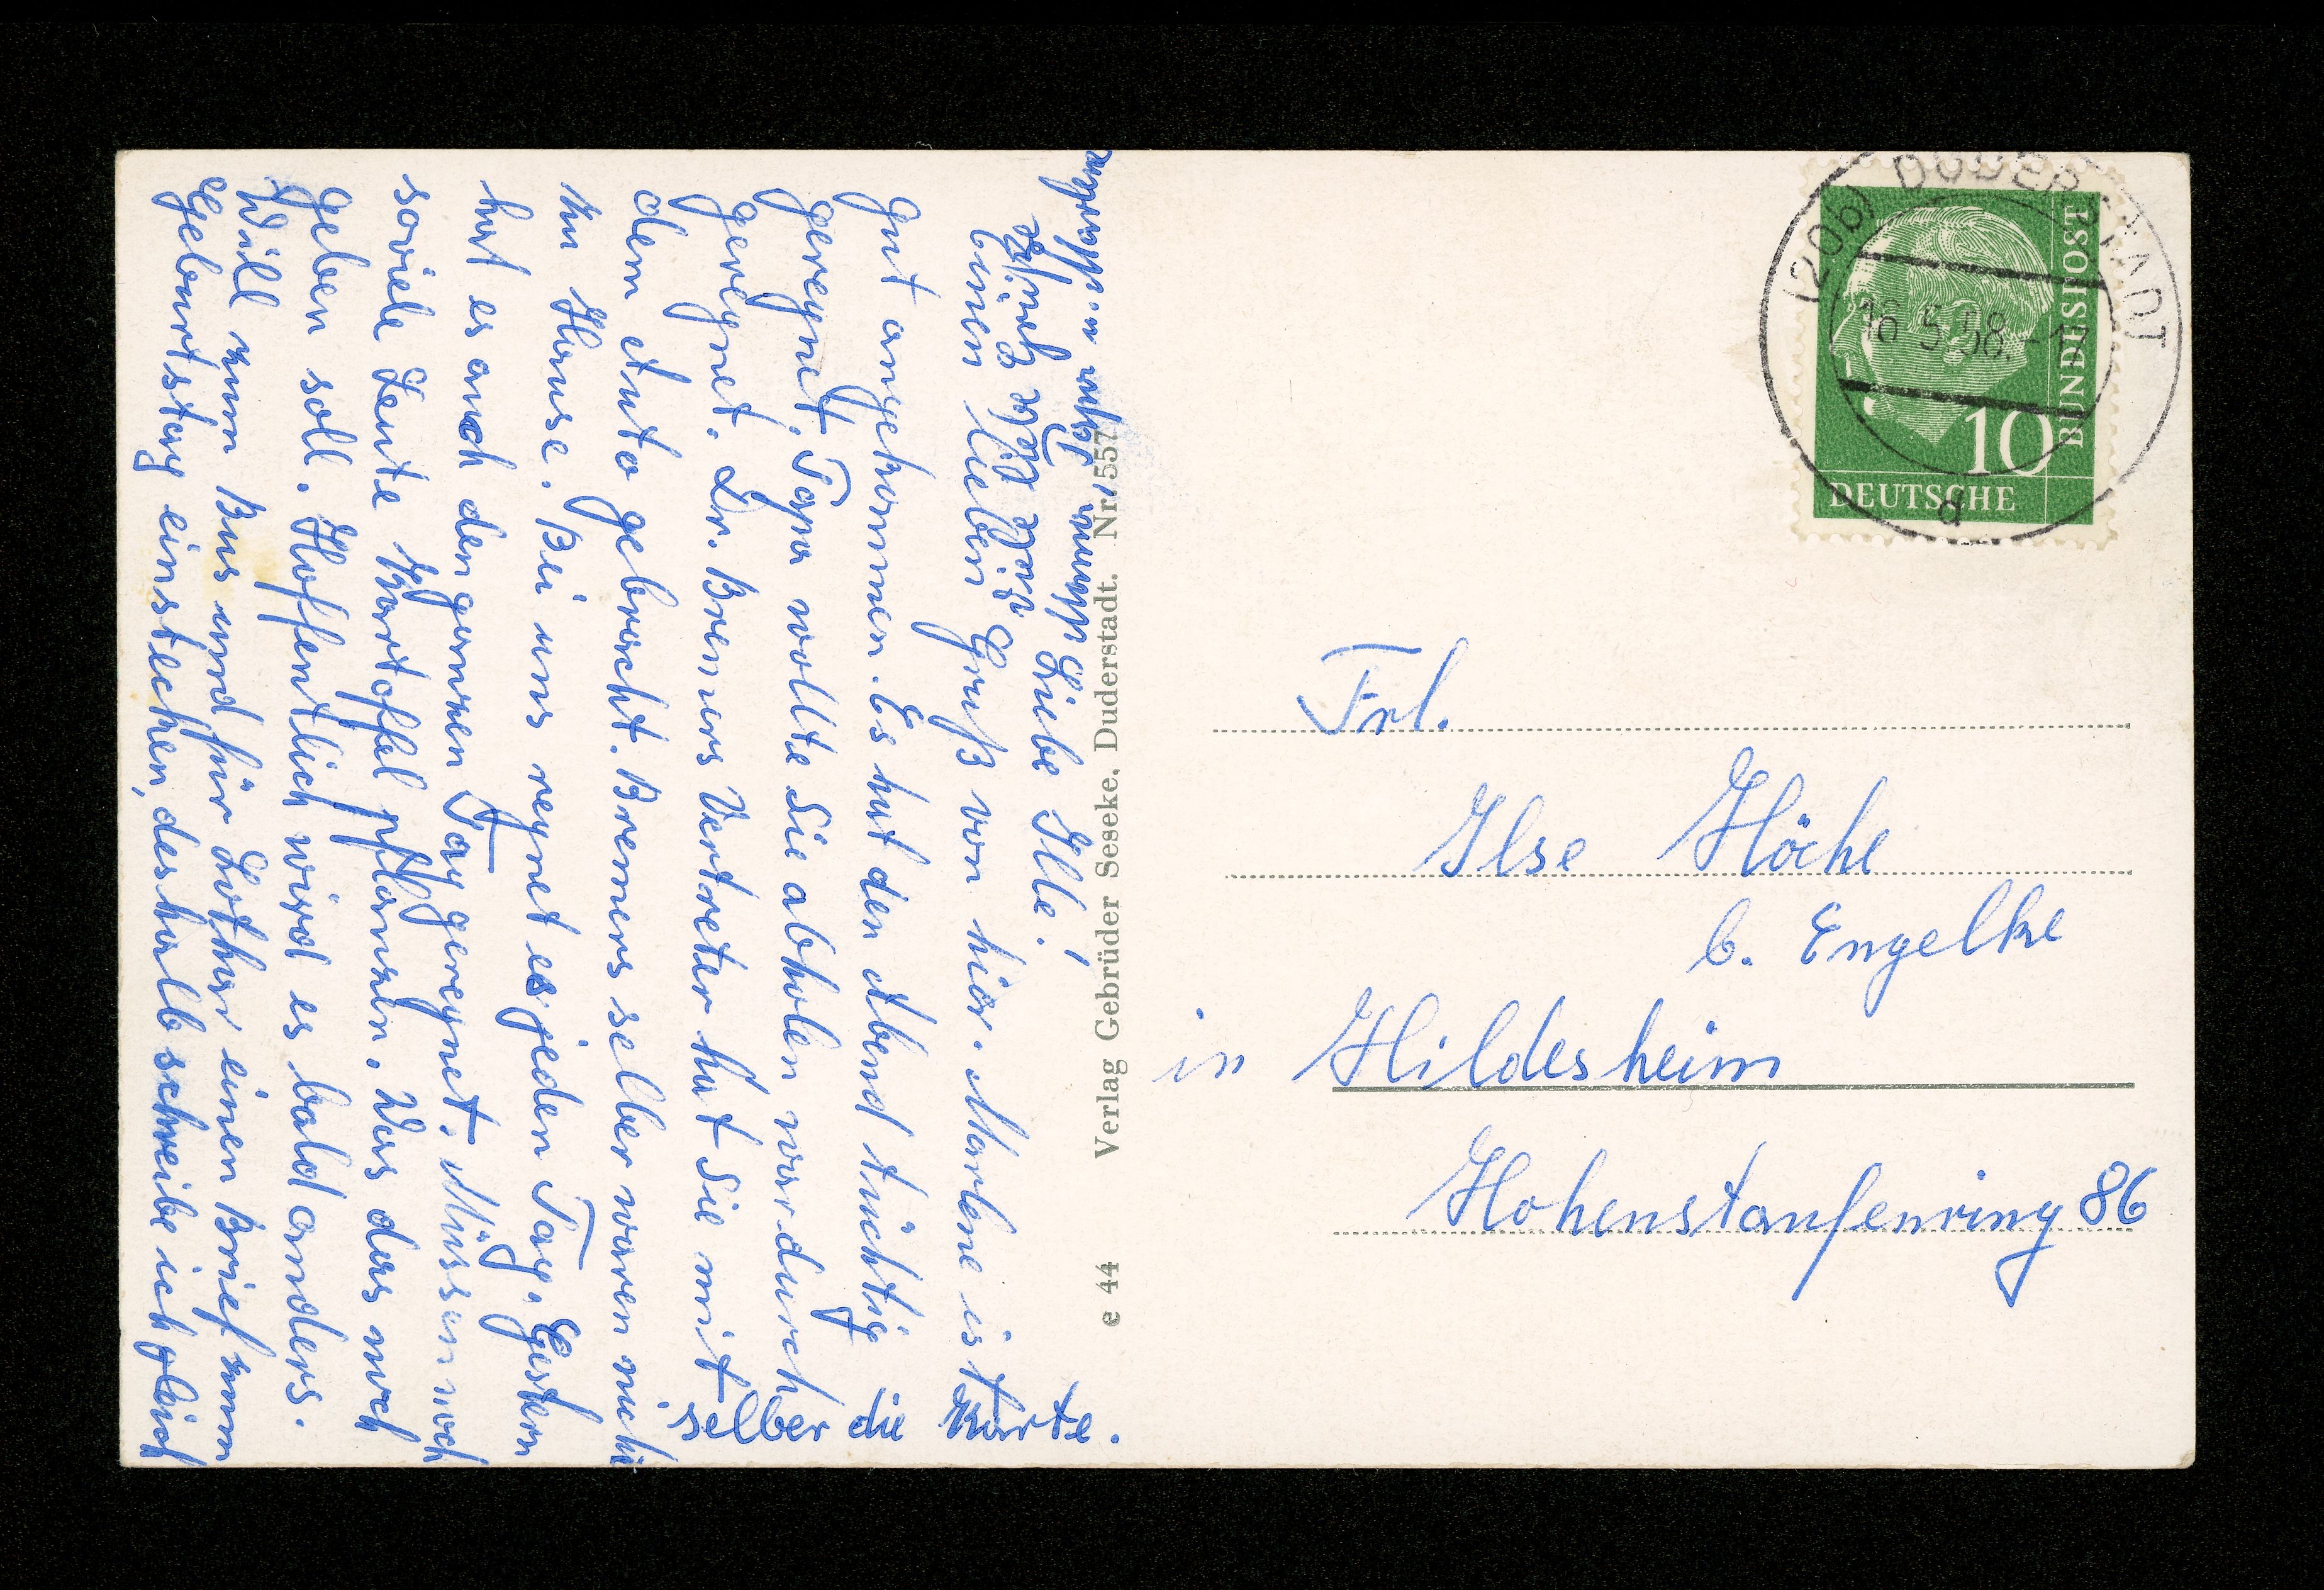 Liebe Ille!
Einen lieben Gruß von hier. Marlene ist
gut angekommen. Es hat den Abend tüchtig
geregnet. Papa wollte Sie abholen war durch
geregnet. Dr. Bremers Vertreter hat Sie mit
dem Auto gebracht. Bremers selber waren nicht
zu Hause. Bei uns regnet es jeden Tag. Gestern
hat es auch den ganzen Tag geregnet. Müssen noch
soviele Leute Kartoffel pflanzen. Was das noch
geben soll. Hoffentlich wird es bald anders.
Will zum Bus und für Lothar einen Brief zum
Geburtstag einstecken, deshalb schreibe ich gleich
selber die Karte.
Mama, Papa u.
Verlag Gebrüder Seseke, Duderstadt. Nr. 557
e 44
(20b) DUDERSTADT
16.5.58.-1
a
10
DEUTSCHE
BUNDESPOST
Frl.
Ilse Höche
b. Engelke
in Hildesheim
Hohenstaufenring 86